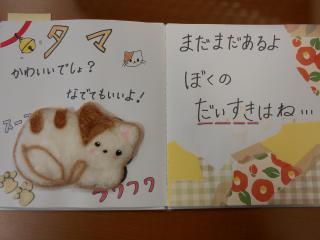 タマ
かわいいでしょ？
なでてもいいよ！
スー
フワフワ
まだまだあるよ
ぼくの
だいすきはね…